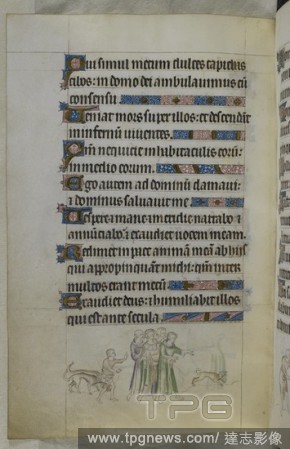 Qui simul mecum dulces capiebas
cibos: in domo dei ambulavimus cū
consensu
Veniat mors super illos: et descendāt
in infernū viventes.
Qm̄ nequicie in habitaculis eorū:
in medio eorum.
Ego autem ad dominū clamavi:
dominus salvavit me.
Vespere mane meridie narrabo
annūciabo: exaudiet vocem meam.
Redimet in pace animā meā ab his
qui appropinquāt michi: qm̄ inter
multos erant mecum
Exaudiet deus: humiliabit illos
qui est ante secula.
TPG
www.tpgnews.com/ 達志影像